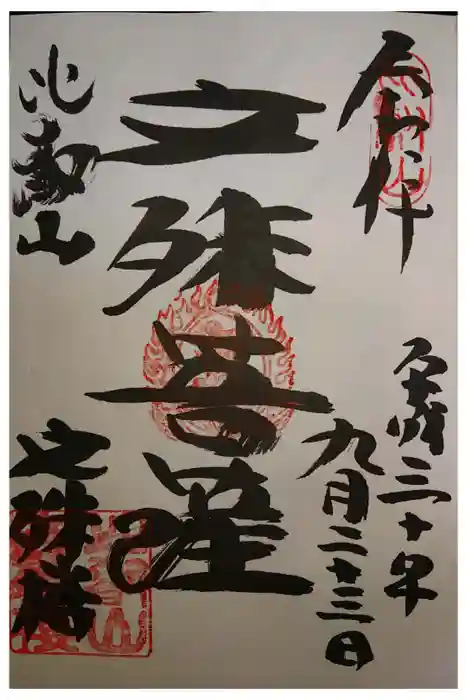 奉拝
平成三十年
九月二十三日
文殊菩薩
比叡山
文殊楼